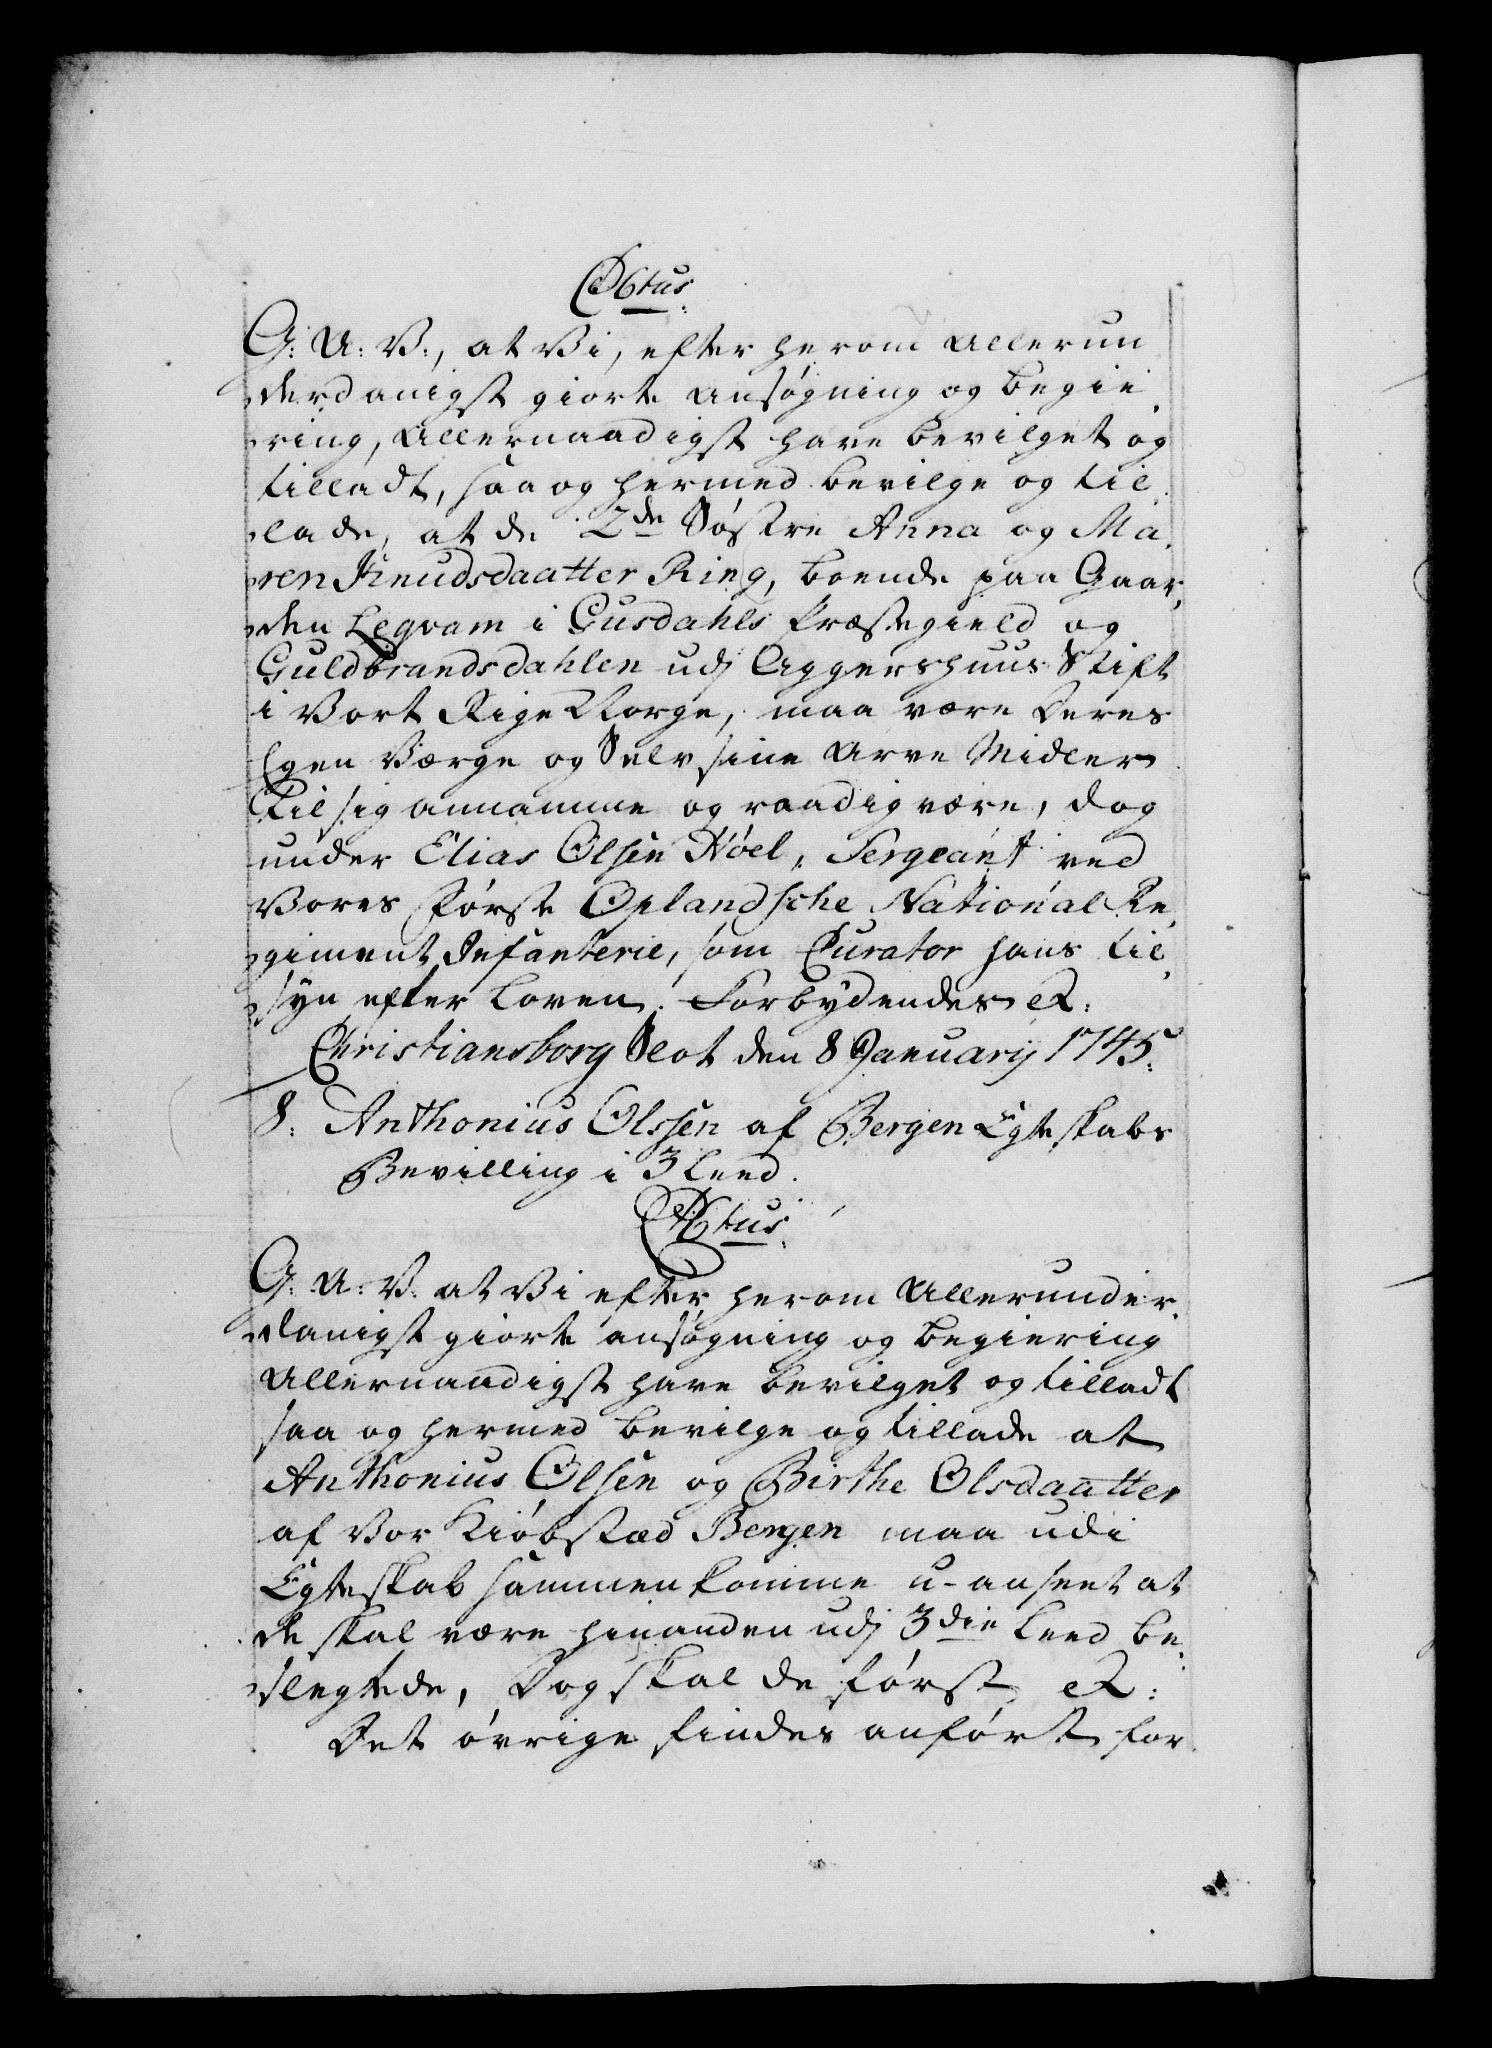 C6tus.
G: A: V:, at Vi, efter herom Allerun
derdanigst giorte Ansøgning og begie
ring, Allernaadigst have bevilget og
tilladt, saa og hermed bevilge og til
lade, at de 2de Søstre Anna og Ma
ren Knudsdaatter Ring, boende paa Gaar
den Leqvam i Gusdahls Præstegield og
Guldbrandsdahlen udj Aggershuus Stift
i Vort Rige Norge, maa være deres
Egen Værge og Selv sine Arve Midler
til sig annamme og raadig være, dog
under Elias Olsen Høel, Sergeant ved
Vores første Oplandsche National Re
giment Infanterie, som Curator hans til
syn efter Loven. Forbydendes &:
Christiansborg Slot den 8 Januarij 1745.
8. Anthonius Olssen af Bergen Egteskabs
Bevilling i 3 Leed.
C6tus.
G: A: V: at Vi efter herom Allerunder
danigst giorte ansøgning og begiering
Allernaadigst have bevilget og tilladt
saa og hermed bevilge og tillade at
Anthonius Olsen og Birthe Olsdaatter
af Vor Kiøbstæd Bergen maa udi
Egteskab sammenkomme u-anseet at
de skal være hinanden udj 3die Leed be
slegtede, Dog skal de først &:
Det øvrige findes anført for